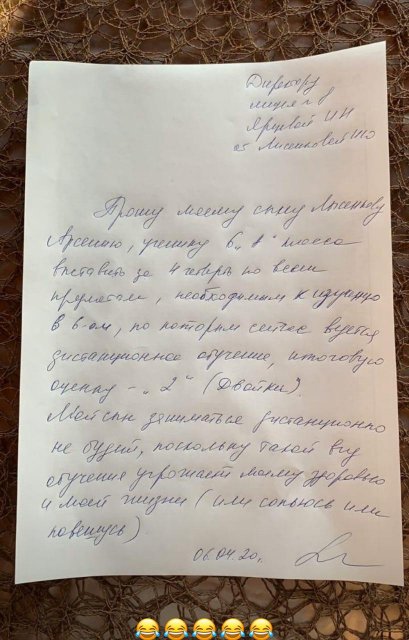 Директору
лицея № 8
Ярцевой И Н
от Лысенковой Ю
Прошу моему сыну Лысенкову
Арсению, ученику 6 „А" класса
выставить за 4 четверть по всем
предметам, необходимым к изучению
в 6-ом, по которым сейчас ведется
дистанционное обучение, итоговую
оценку - „2" (Двойки).
Мой сын заниматься дистанционно
не будет, поскольку такой вид
обучения угрожает моему здоровью
и моей жизни (или сопьюсь или
повешусь).
06.04.20г.
😂😂😂😂😂